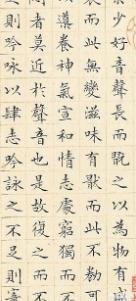 少好音聲長而翫之以為物有
衰而此無變滋味有猒而此不勌可
導養神氣宣和情志處窮獨而不
者莫近於聲音也是故復之而不
則吟詠以肆志吟詠之不足則寄